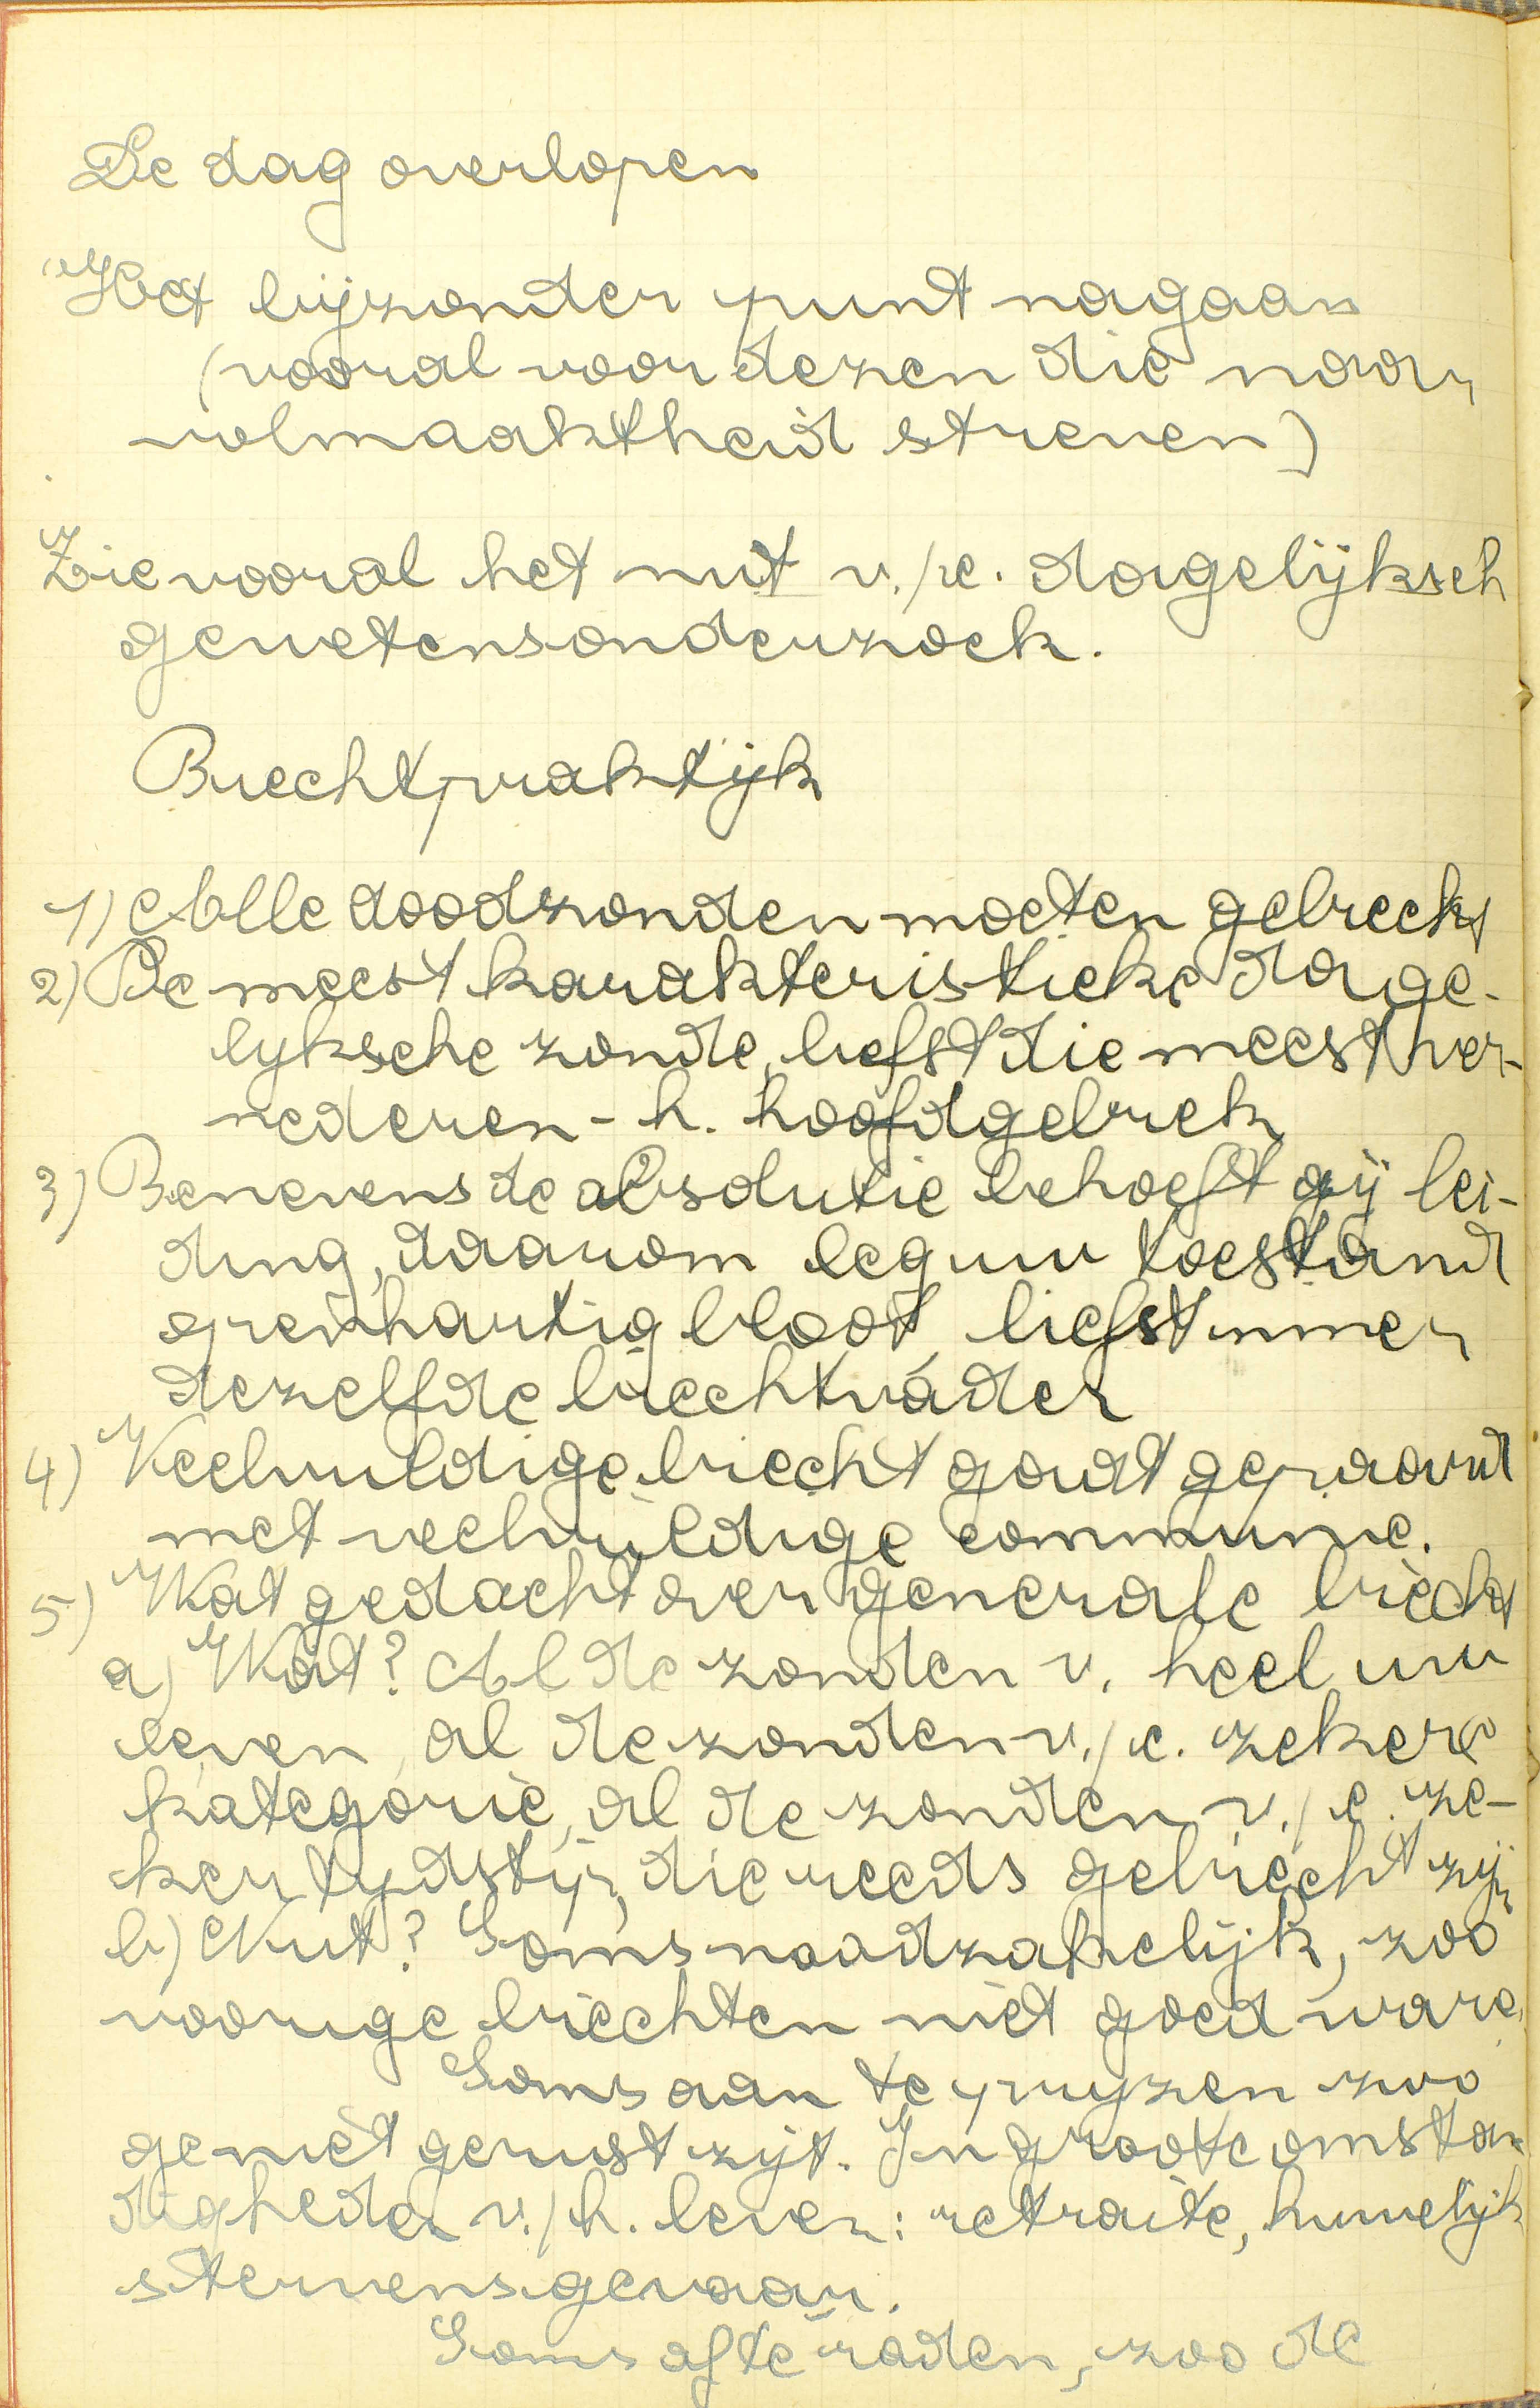 De dag overlopen
Het bijzonder punt nagaan
(vooral voor dezen die naar
volmaaktheid streven)
Zie vooral het nut v./e. dagelijksch
gewetensonderzoek.
Biechtpraktijk
1) Alle doodzonden moeten gebiecht
2) De meest karakteristieke dage-
lyksche zonde, liefst die meest ver-
nederen - h. hoofdgebrek
3) Benevens de absolutie behoeft gij lei-
ding, daarom leg uw toestand
openhartig bloot, liefst immer
dezelfde biechtvader
4) Veelvuldige biecht gaat gepaard
met veelvuldige communie.
5) Wat gedacht over generale biecht
a) Wat? Al de zonden v. heel uw
leven, al de zonden v./e. zekere
kategorie, al de zonden v./e. ze-
ker tydstip, die reeds gebiecht zijn
b) Nut? Soms noodzakelijk, zoo
voorige biechten niet goed ware
Soms aan te pryzen zoo
ge niet gerust zijt. In groote omstan
digheden v./h. leven: retraite, huwelijk
stervensgevaar.
Soms af te raden, zoo de